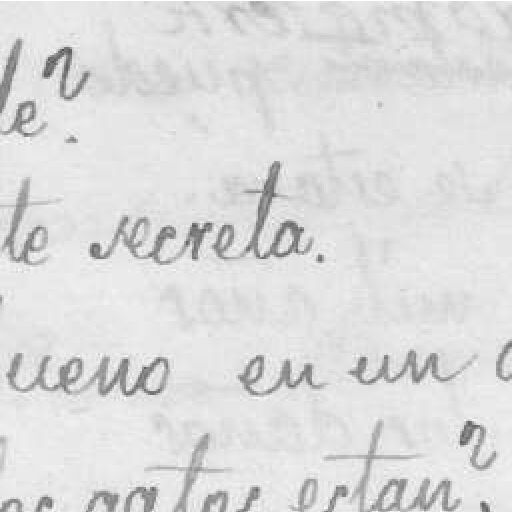 le?
te secreta.
ueno en un
los gatos estan?